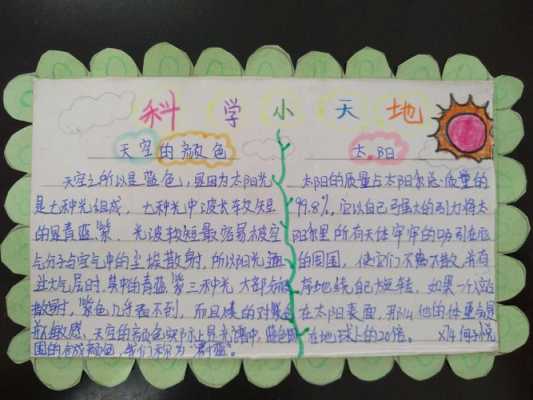 科学小天地
天空的颜色
天空之所以是蓝色,是因为太阳光
是七种光组成,七种光中波长较短
的是青蓝紫,光波较短最容易被空
气分子与空气中的尘埃散射,所以阳光通
过大气层时,其中的青蓝紫三种光大部分被
散射,紫色几乎看不到,而且人的对紫色
不敏感,天空的颜色实际上是光谱中蓝色
围的合成颜色,我们称为"蔚蓝"。
太阳
太阳的质量占太阳系总质量的
99.8%,它以自己强大的引力将太
阳系里所有天体牢牢的吸引在它
的周围,使它们不离不散、井有
有序地绕自己旋转,如果一个人站
在太阳表面,那么他的体重会是
在地球上的20倍。